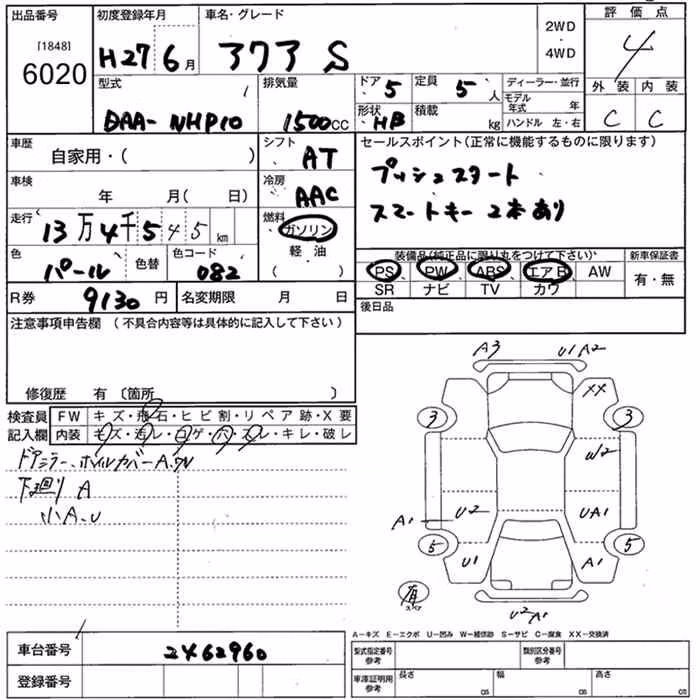 出品番号 初度登録年月 車名・グレード 2WD・4WD 評価点
[1848]
6020 H27 6月 アクア S 4
型式 排気量 ドア 5 定員 5人 ディーラー・並行 外装 内装
DAA-NHP10 1500cc 形状 HB 積載 kg モデル年式 年 C C
ハンドル 左・右
車歴 自家用・( ) シフト AT セールスポイント(正常に機能するものに限ります)
車検 年 月( 日) 冷房 AAC プッシュスタート
走行 13万4千545km 燃料 ガソリン スマートキー2本あり
軽油
( )
色 パール 色替 色コード 082 装備品(純正品に限り丸をつけて下さい) 新車保証書
PS PW ABS エアB AW 有・無
SR ナビ TV カワ
R券 9130円 名変期限 月 日 後日品
注意事項申告欄 (不具合内容等は具体的に記入して下さい)
修復歴 有 〔箇所 〕
検査員 FW キズ・飛石・ヒビ割・リペア跡・X要
記入欄 内装 キズ・汚レ・コゲ・穴・スレ・キレ・破レ
ドアミラー、ホイルカバーA
下廻り A
小A、U
A3 U1 A2
XX
3 3
W2
U2 UA1
A1
5 5
U1 A1
有
スペア
U2 A1
A-キズ E-エクボ U-凹み W-補修跡 S-サビ C-腐食 XX-交換済
車台番号 2462960
登録番号
型式指定番号 参考 類別区分番号 参考
車庫証明用 参考 長さ cm 幅 cm 高さ cm